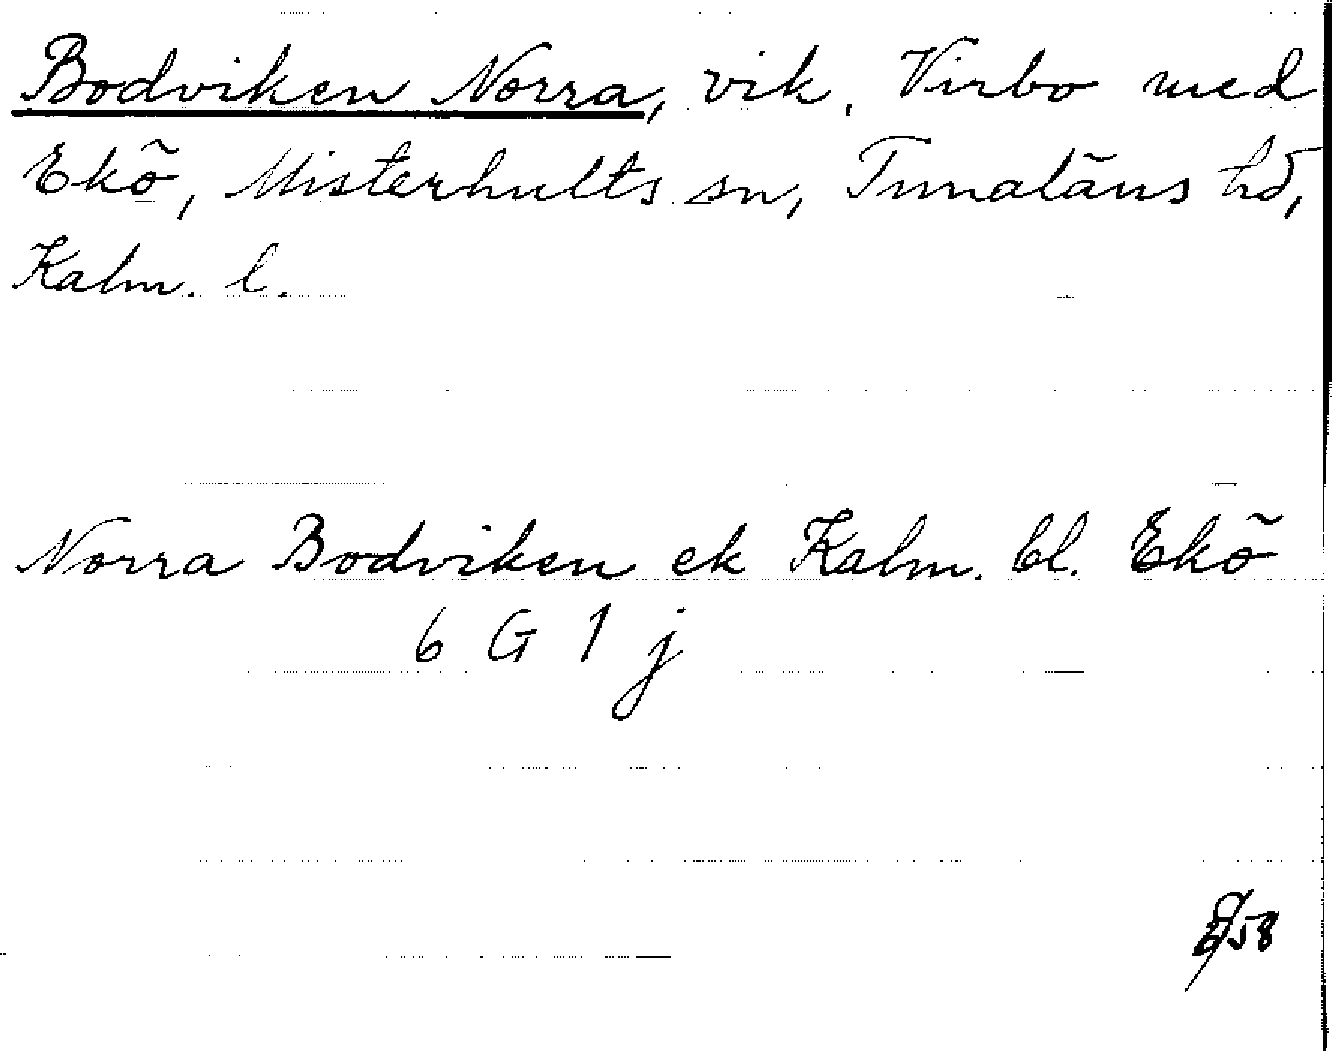 Bodviken Norra, vik, Virbo med
Ekö, Misterhults sn, Tunaläns hd,
Kalm. l.
Norra Bodviken ek Kalm. bl. Ekö
6 G 1 j
58